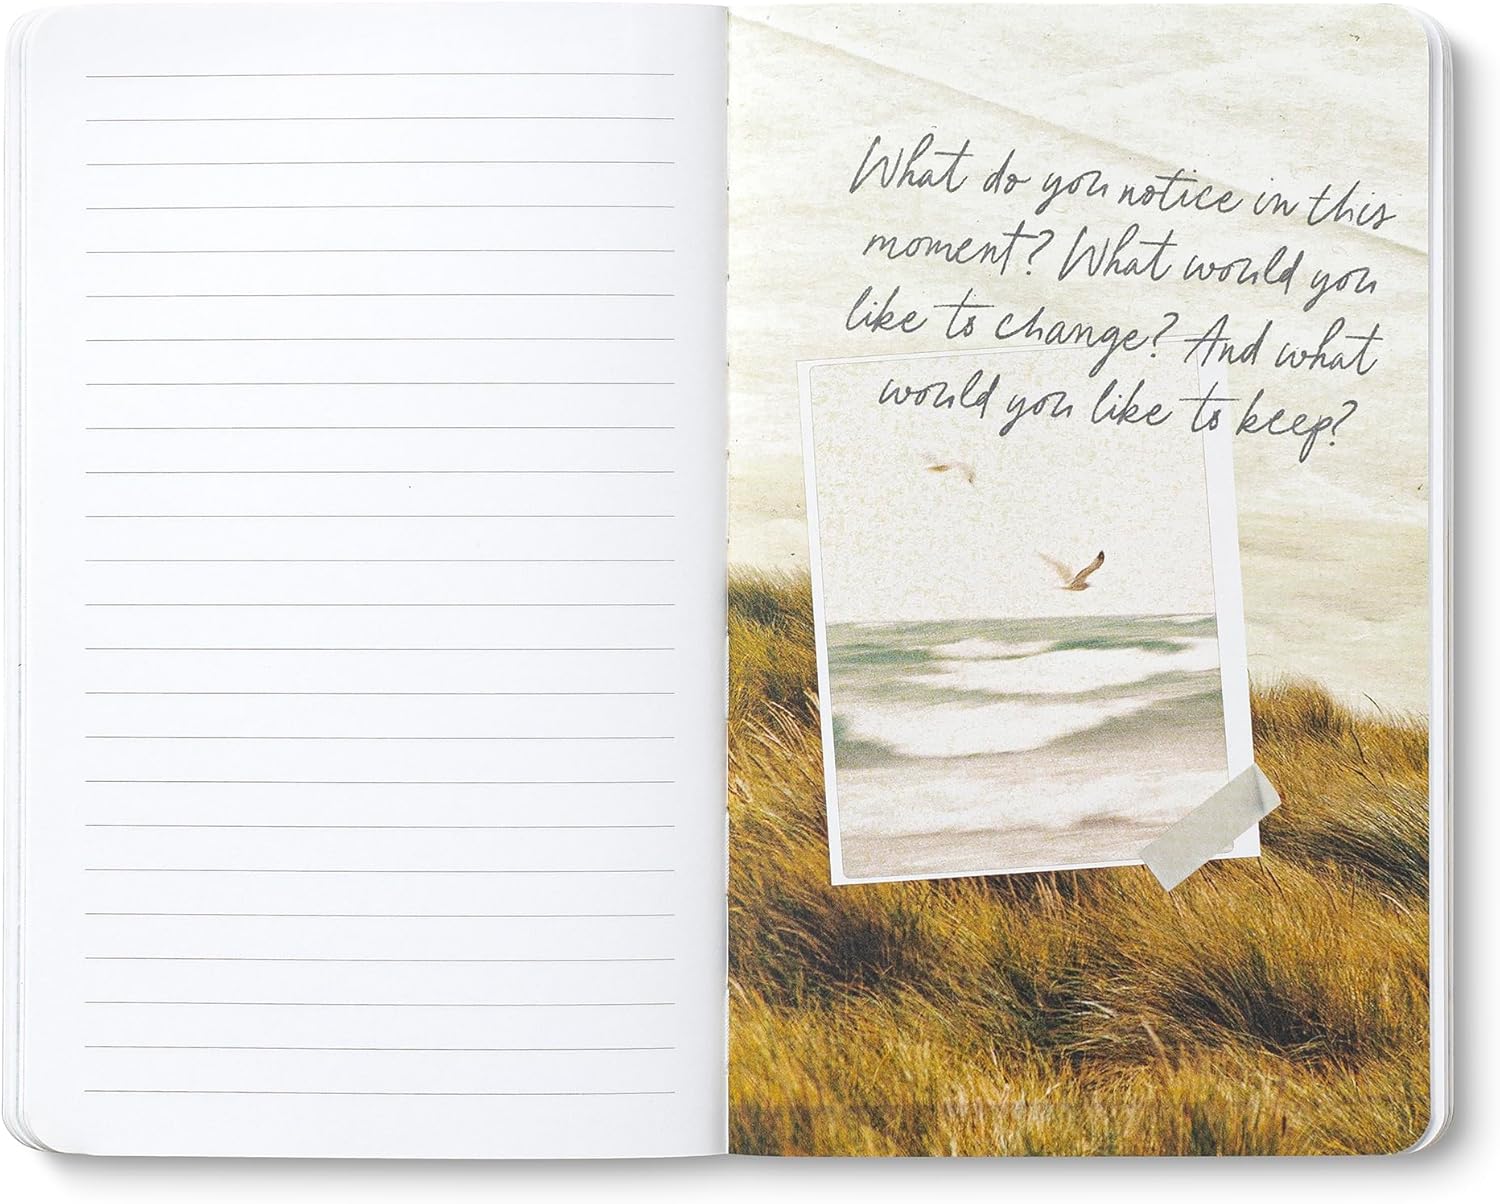 What do you notice in this
moment? What would you
like to change? And what
would you like to keep?